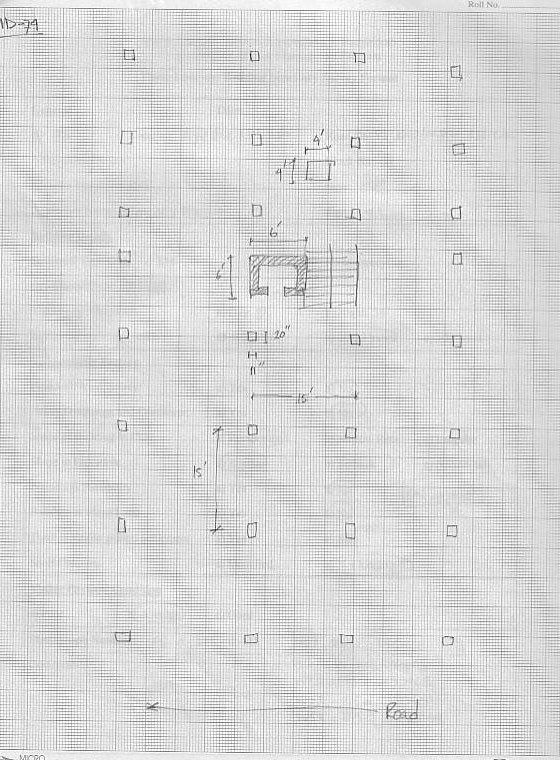 Roll No.
4'
4'
6'
6'
20"
11"
15'
15'
Road
MICRO